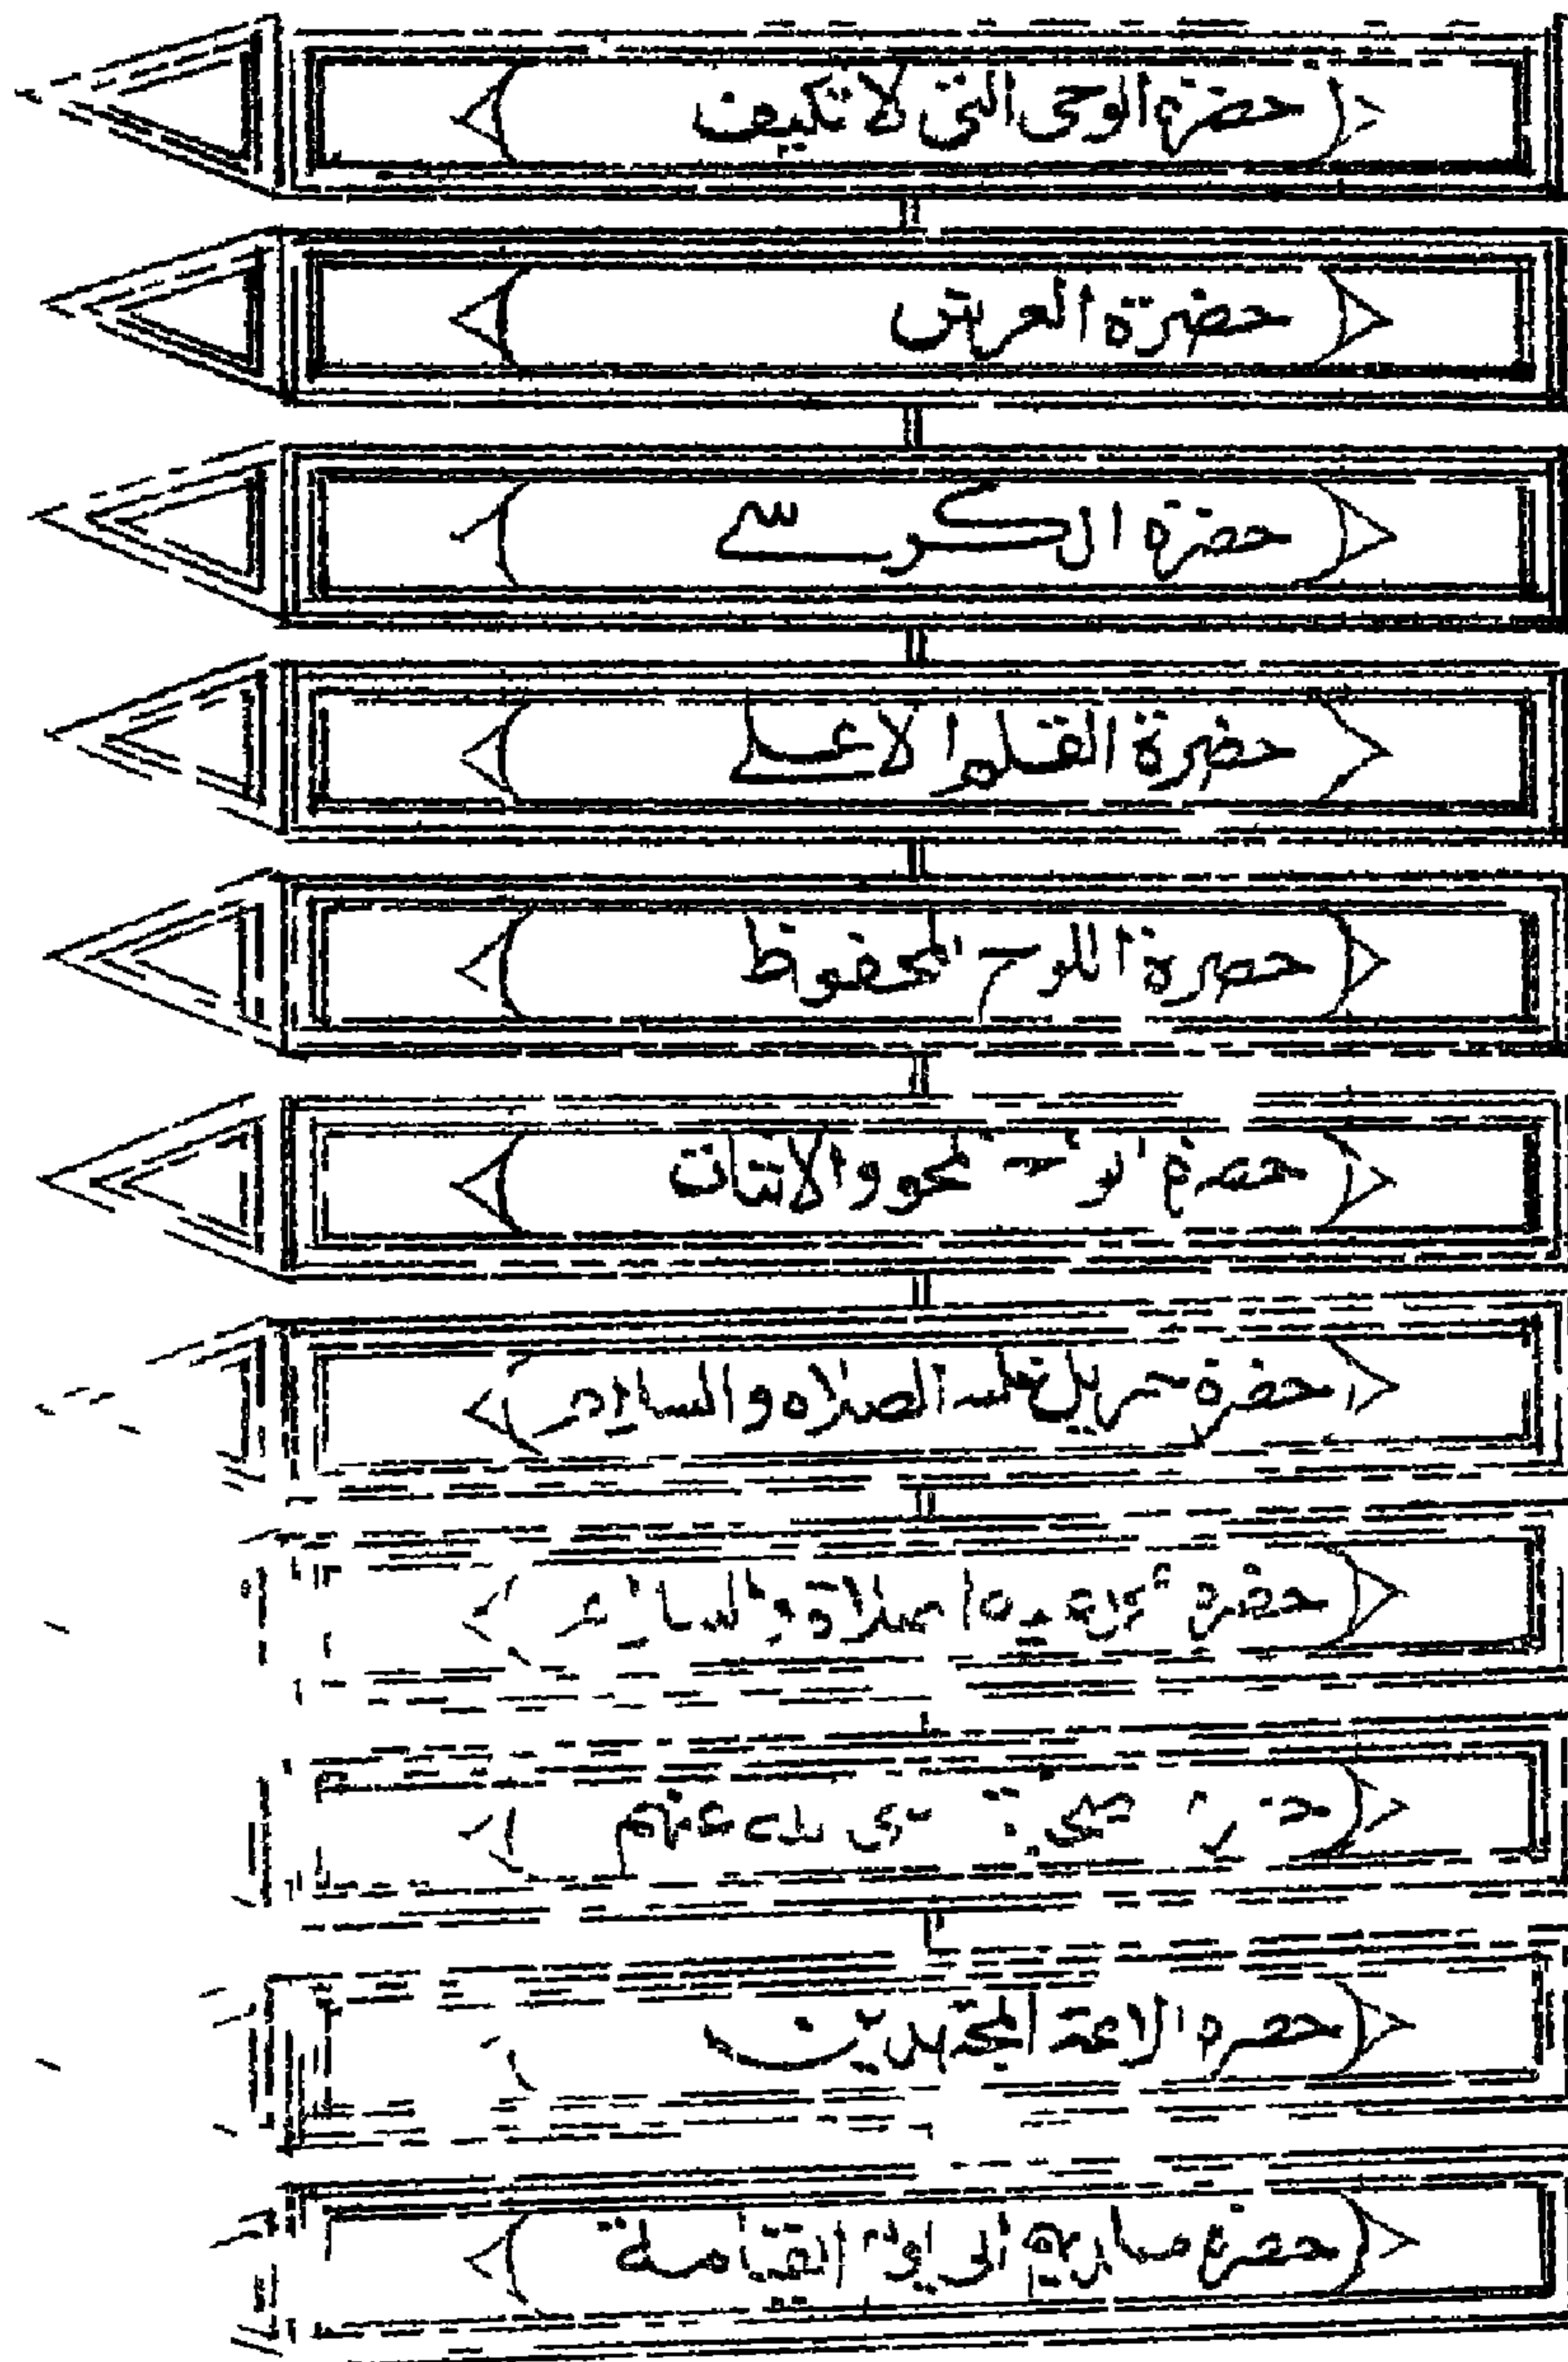 حضرة الوحى التى لا تكيف
حضرة العرش
حضرة الكرسى
حضرة القلم الاعلى
حضرة اللوح المحفوظ
حضرة المحو والاثبات
حضرة جبريل عليه الصلاة والسلام
حضرة الصلاة والسلام
حضرة عنهم
حضرة الائمة المجتهدين
حضرة الى يوم القيامة